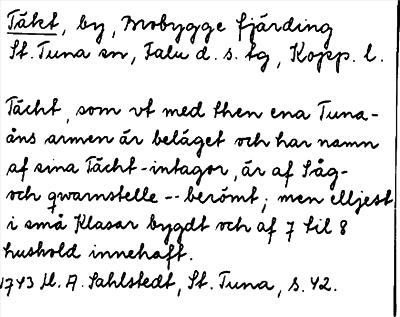 Täkt, by, Brobygge fjärding
St. Tuna sn, Falu d. s. tg, Kopp. l.
Tächt, som vt med then ena Tuna-
åns armen är beläget och har namn
af sina Tächt-intagor, är af Såg-
och qwarnstelle -- berömt; men elljest
i små Klasar bygdt och af 7 til 8
hushold innehaft.
1743 M. A. Sahlstedt, St. Tuna, s. 42.